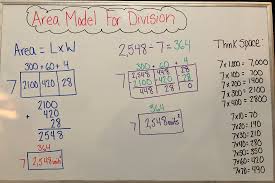 Area Model for Division
Area = L x W
300 + 60 + 4
7 2100 420 28
2100
+ 420
28
2548
364
7 2,548 units²
2,548 ÷ 7 = 364
300 + 60 + 4
7 2,548 448 28
2,100 420 28
448 28 0
364
7 2,548 units²
Think Space:
7 x 1,000 = 7,000
7 x 100 = 700
7 x 200 = 1400
7 x 300 = 2100
7 x 400 = 2800
7 x 10 = 70
7 x 20 = 140
7 x 30 = 210
7 x 40 = 280
7 x 50 = 350
7 x 60 = 420
7 x 70 = 490